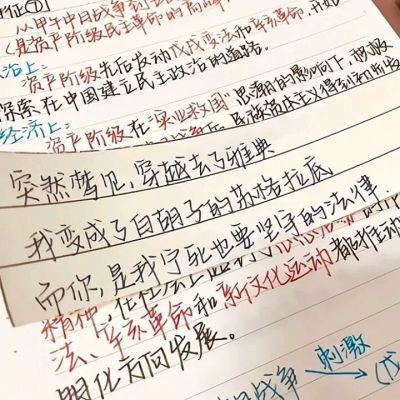 征⑦
从甲午中日战争到
(是资产阶级民主革命的高
治上:
资产阶级先后发动戊戌变法和辛亥革命,
探索在中国建立民主政治的道路。
经济上:
资产阶级在"实业救国"思潮的影响下,积极
民族资本主义得到初步发
突然梦见,穿越去了雅典
我变成了白胡子的苏格拉底
而你,是我宁死也要坚守的法律.
精神,
法、辛亥革命和新文化运动都推动
明化方向发展。
战争
刺激